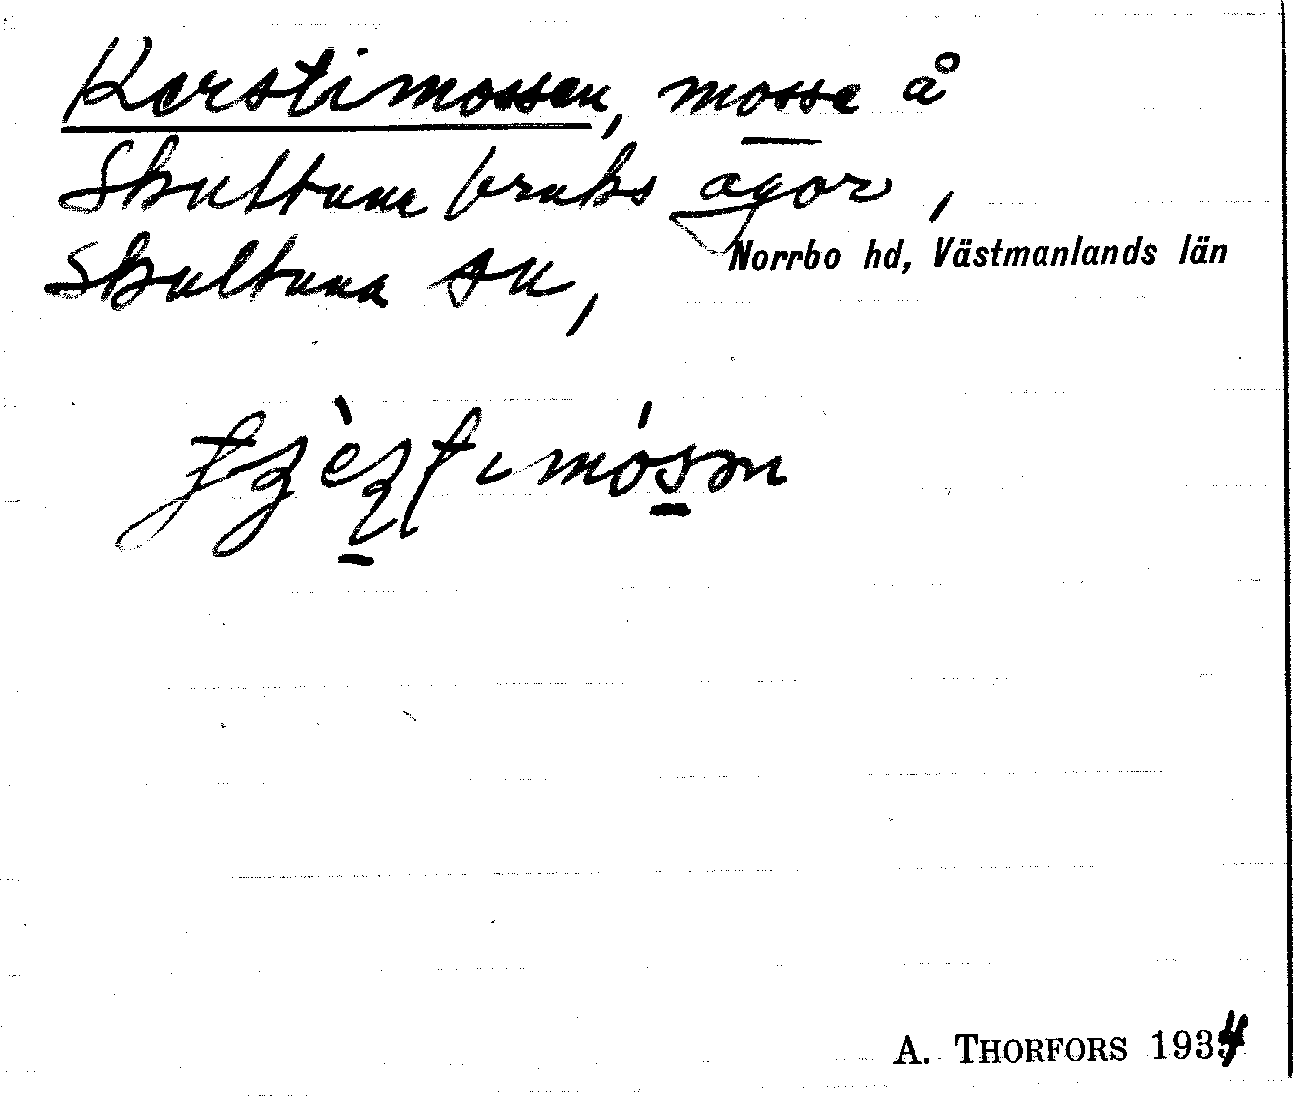 Kerstimossen, mosse å
Skultuna bruks ägor,
Norrbo hd, Västmanlands län
Skultuna sn,
A. THORFORS 1934